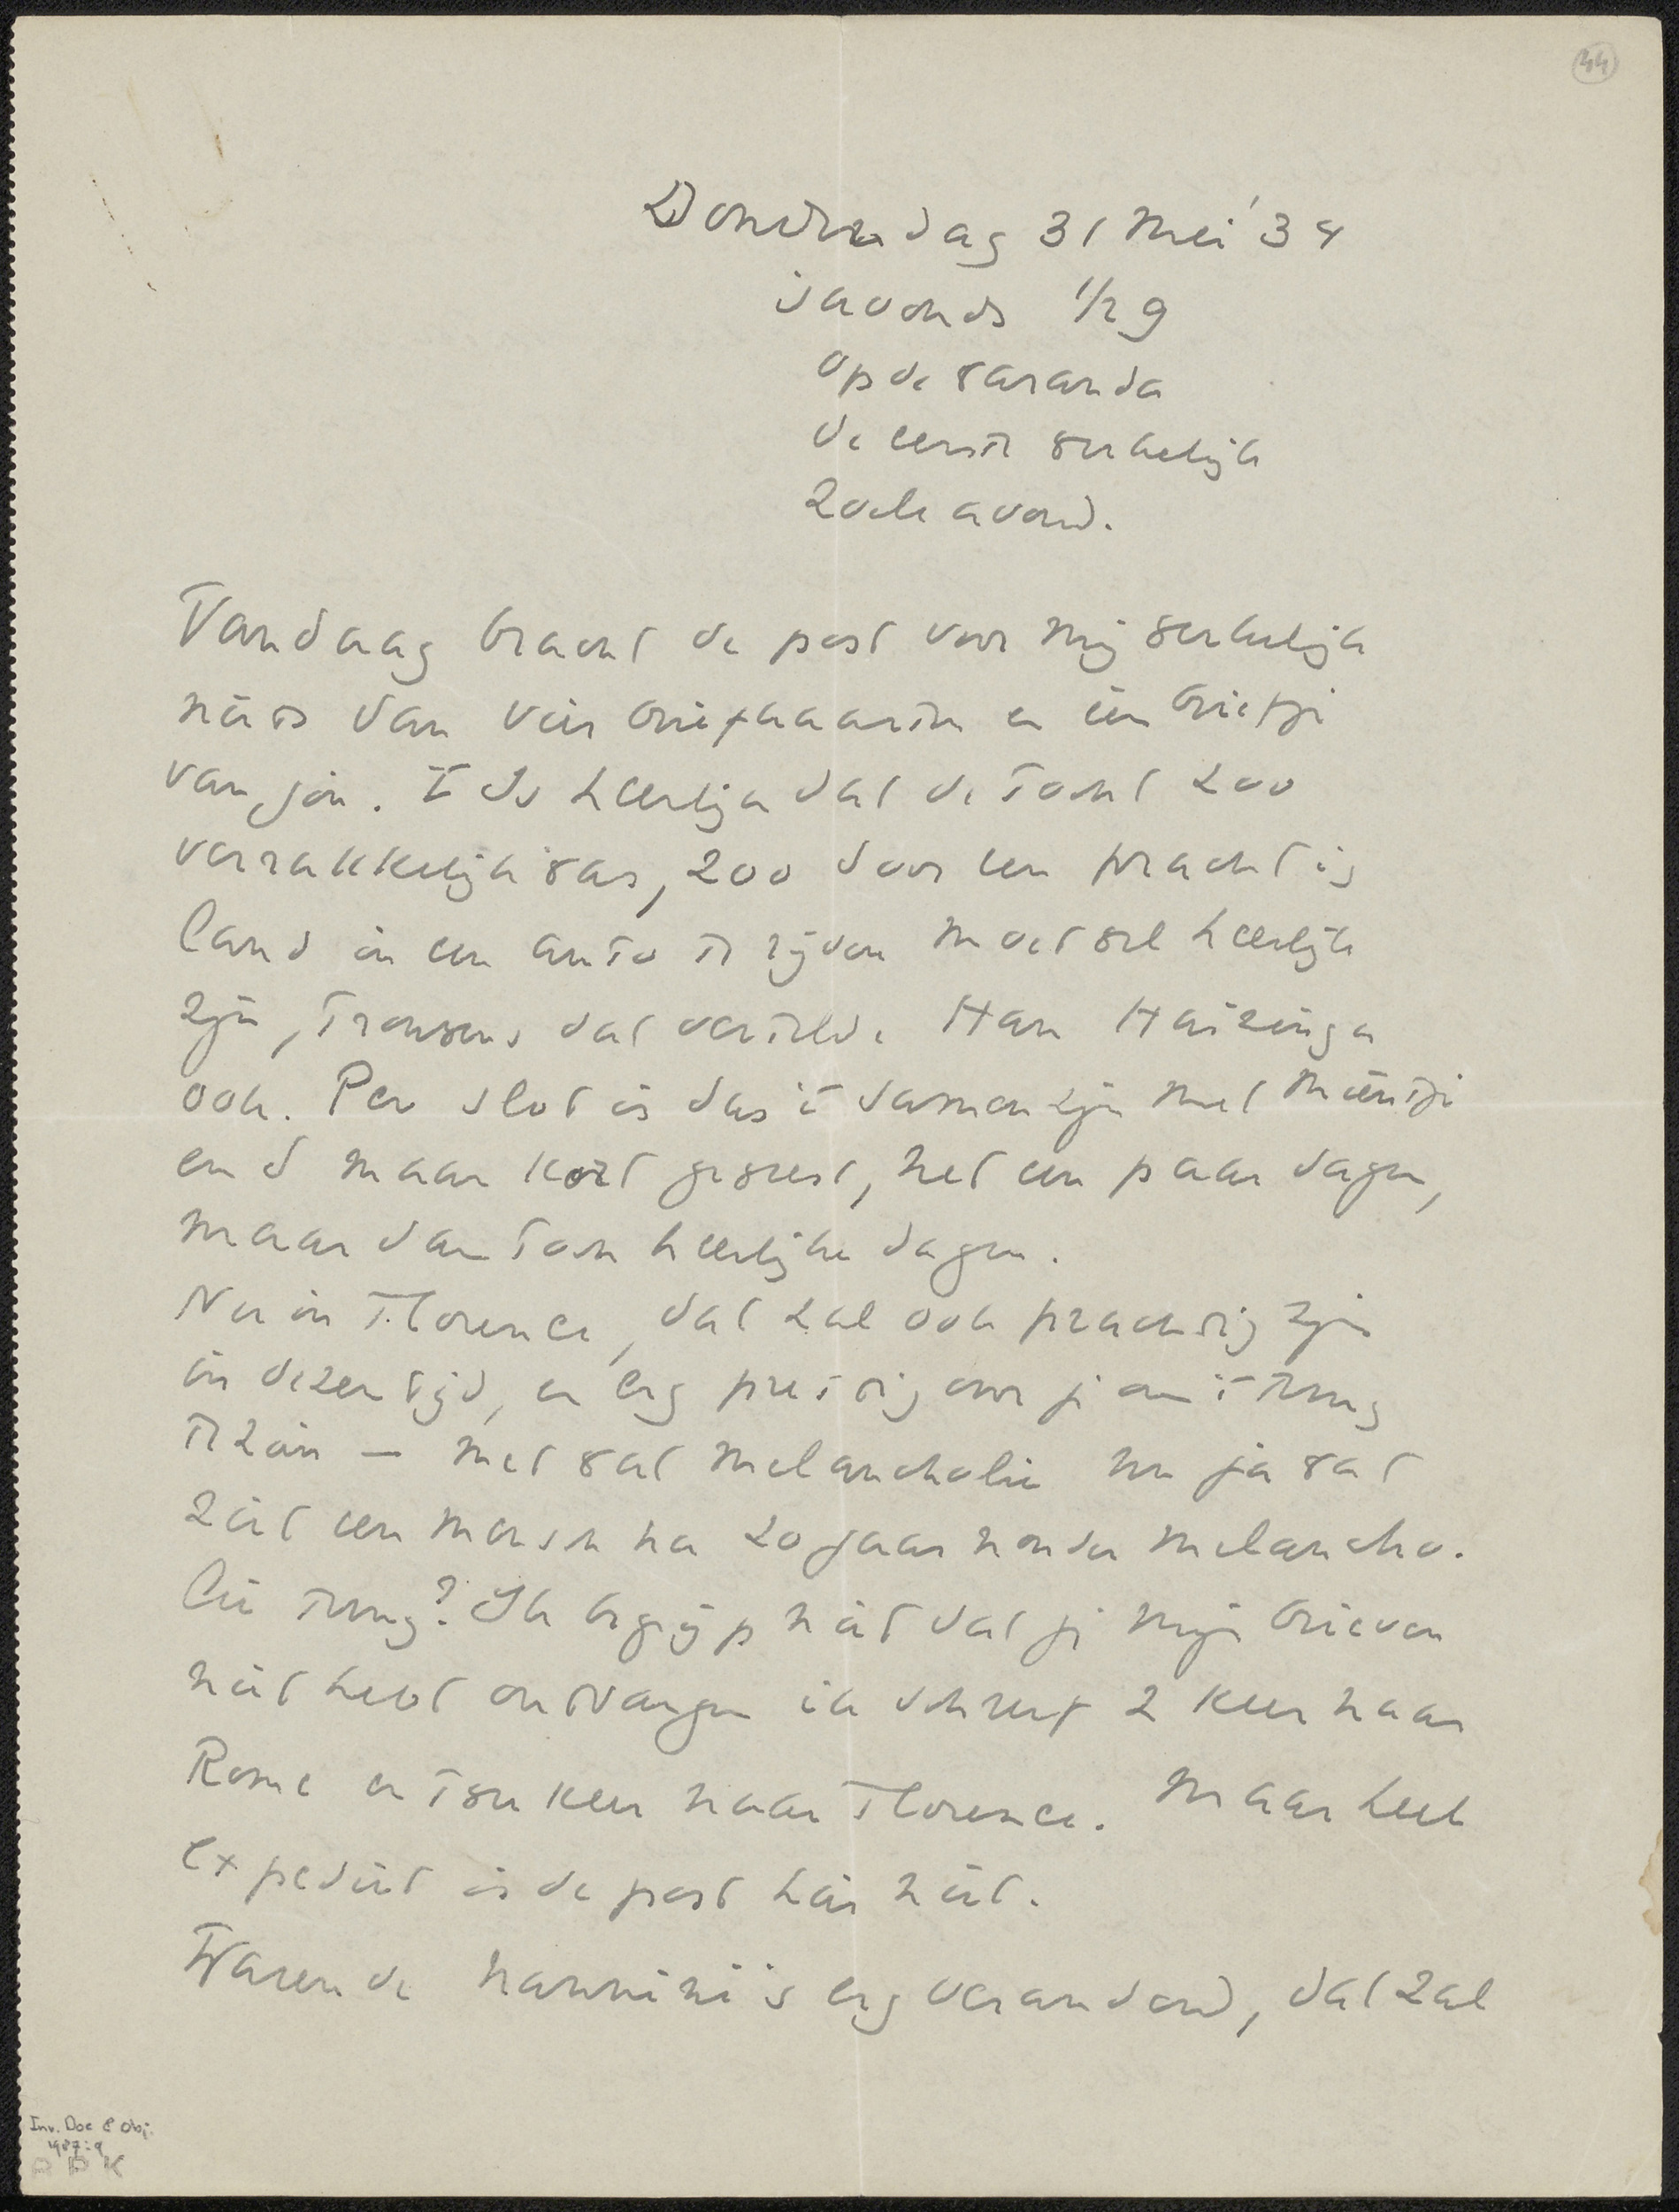 44
Donderdag 31 Mei '34
's avonds 1/2 9
op de waranda
de eerste werkelijk
zoele avond.
Vandaag bracht de post voor mij werkelijk
niets dan vier briefkaarten en één briefje
van jou. 't Is heerlijk dat de tocht zoo
verrukkelijk was, zoo door een prachtig
land in een auto te rijden moet wel heerlijk
zijn, trouwens dat vertelde Han Huizinga
ook. Per slot is dus 't samenzijn met Mientje
en d maar kort geweest, net een paar dagen,
maar dan toch heerlijke dagen.
Nu in Florence, dat zal ook prachtig zijn
in dezen tijd, en erg prettig voor je om 't terug
te zien — met wat melancholie nu ja wat
ziet een mensch na 20 jaar zonder melancho-
lie terug? Ik begrijp niet dat je mijn brieven
niet hebt ontvangen ik schreef 2 keer naar
Rome en twee keer naar Florence. Maar heel
expediet is de post hier niet.
Waren de Nannini's erg veranderd, dat zal
Inv. Doc & Obj.
1987:9
PDK